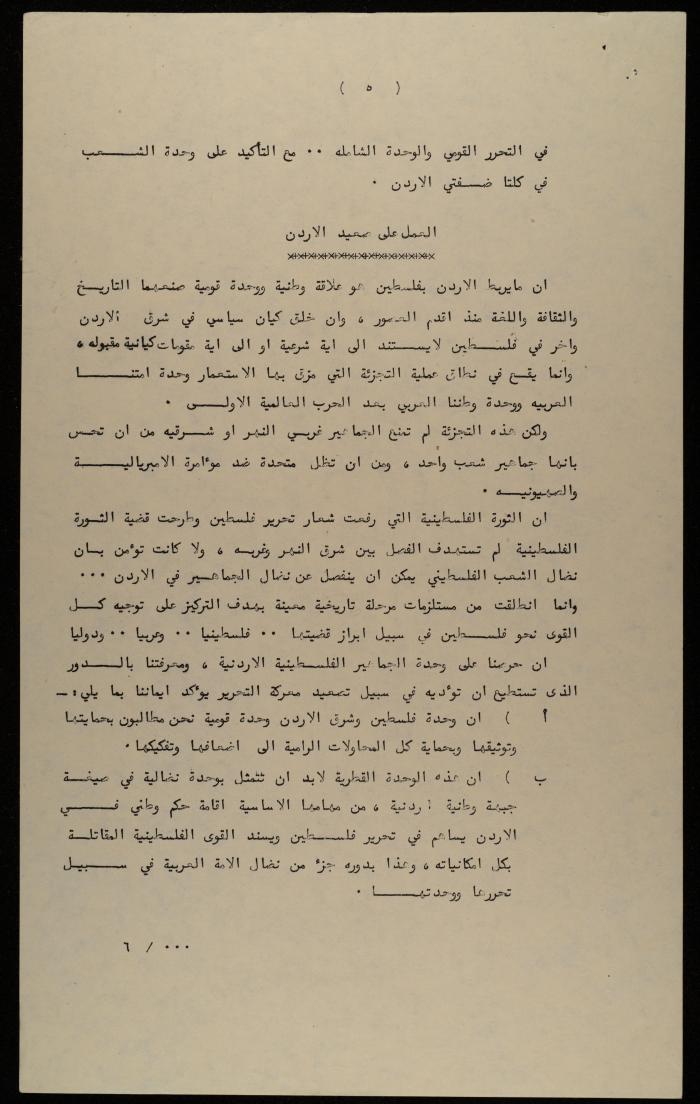 ( ٥ )
في التحرر القومي والوحدة الشامله ٠٠ مع التأكيد على وحدة الشعب
في كلتا ضفتي الاردن ٠
العمل على صعيد الاردن
ان مايربط الاردن بفلسطين هو علاقة وطنية ووحدة قومية صنعهما التاريخ
والثقافة واللغة منذ اقدم العصور ، وان خلق كيان سياسي في شرق الاردن
واخر في فلسطين لايستند الى اية شرعية او الى اية مقومات كيانية مقبوله ،
وانما يقع في نطاق عملية التجزئة التي مزق بها الاستعمار وحدة امتنا
العربيه ووحدة وطننا العربي بعد الحرب العالمية الاولى ٠
ولكن هذه التجزئة لم تمنع الجماهير غربي النهر او شرقيه من ان تحس
بانها جماهير شعب واحد ، ومن ان تظل متحدة ضد موءامرة الامبريالية
والصهيونيه ٠
ان الثورة الفلسطينية التي رفعت شعار تحرير فلسطين وطرحت قضية الثورة
الفلسطينية لم تستهدف الفصل بين شرق النهر وغربه ، ولا كانت توءمن بان
نضال الشعب الفلسطيني يمكن ان ينفصل عن نضال الجماهير في الاردن ٠٠٠
وانما انطلقت من مستلزمات مرحلة تاريخية معينة بهدف التركيز على توجيه كل
القوى نحو فلسطين في سبيل ابراز قضيتها ٠٠ فلسطينيا ٠٠ وعربيا ٠٠ ودوليا
ان حرصنا على وحدة الجماهير الفلسطينية الاردنية ، ومعرفتنا بالدور
الذى تستطيع ان توءديه في سبيل تصعيد معركة التحرير يوءكد ايماننا بما يلي :ـ
أ ) ان وحدة فلسطين وشرق الاردن وحدة قومية نحن مطالبون بحمايتها
وتوثيقها وبحماية كل المحاولات الرامية الى اضعافها وتفكيكها ٠
ب ) ان هذه الوحدة القطرية لابد ان تتمثل بوحدة نضالية في صيغة
جبهة وطنية اردنية ، من مهامها الاساسية اقامة حكم وطني في
الاردن يساهم في تحرير فلسطين ويسند القوى الفلسطينية المقاتلة
بكل امكانياته ، وهذا بدوره جزء من نضال الامة العربية في سبيل
تحررها ووحدتها ٠
٠٠٠ / ٦